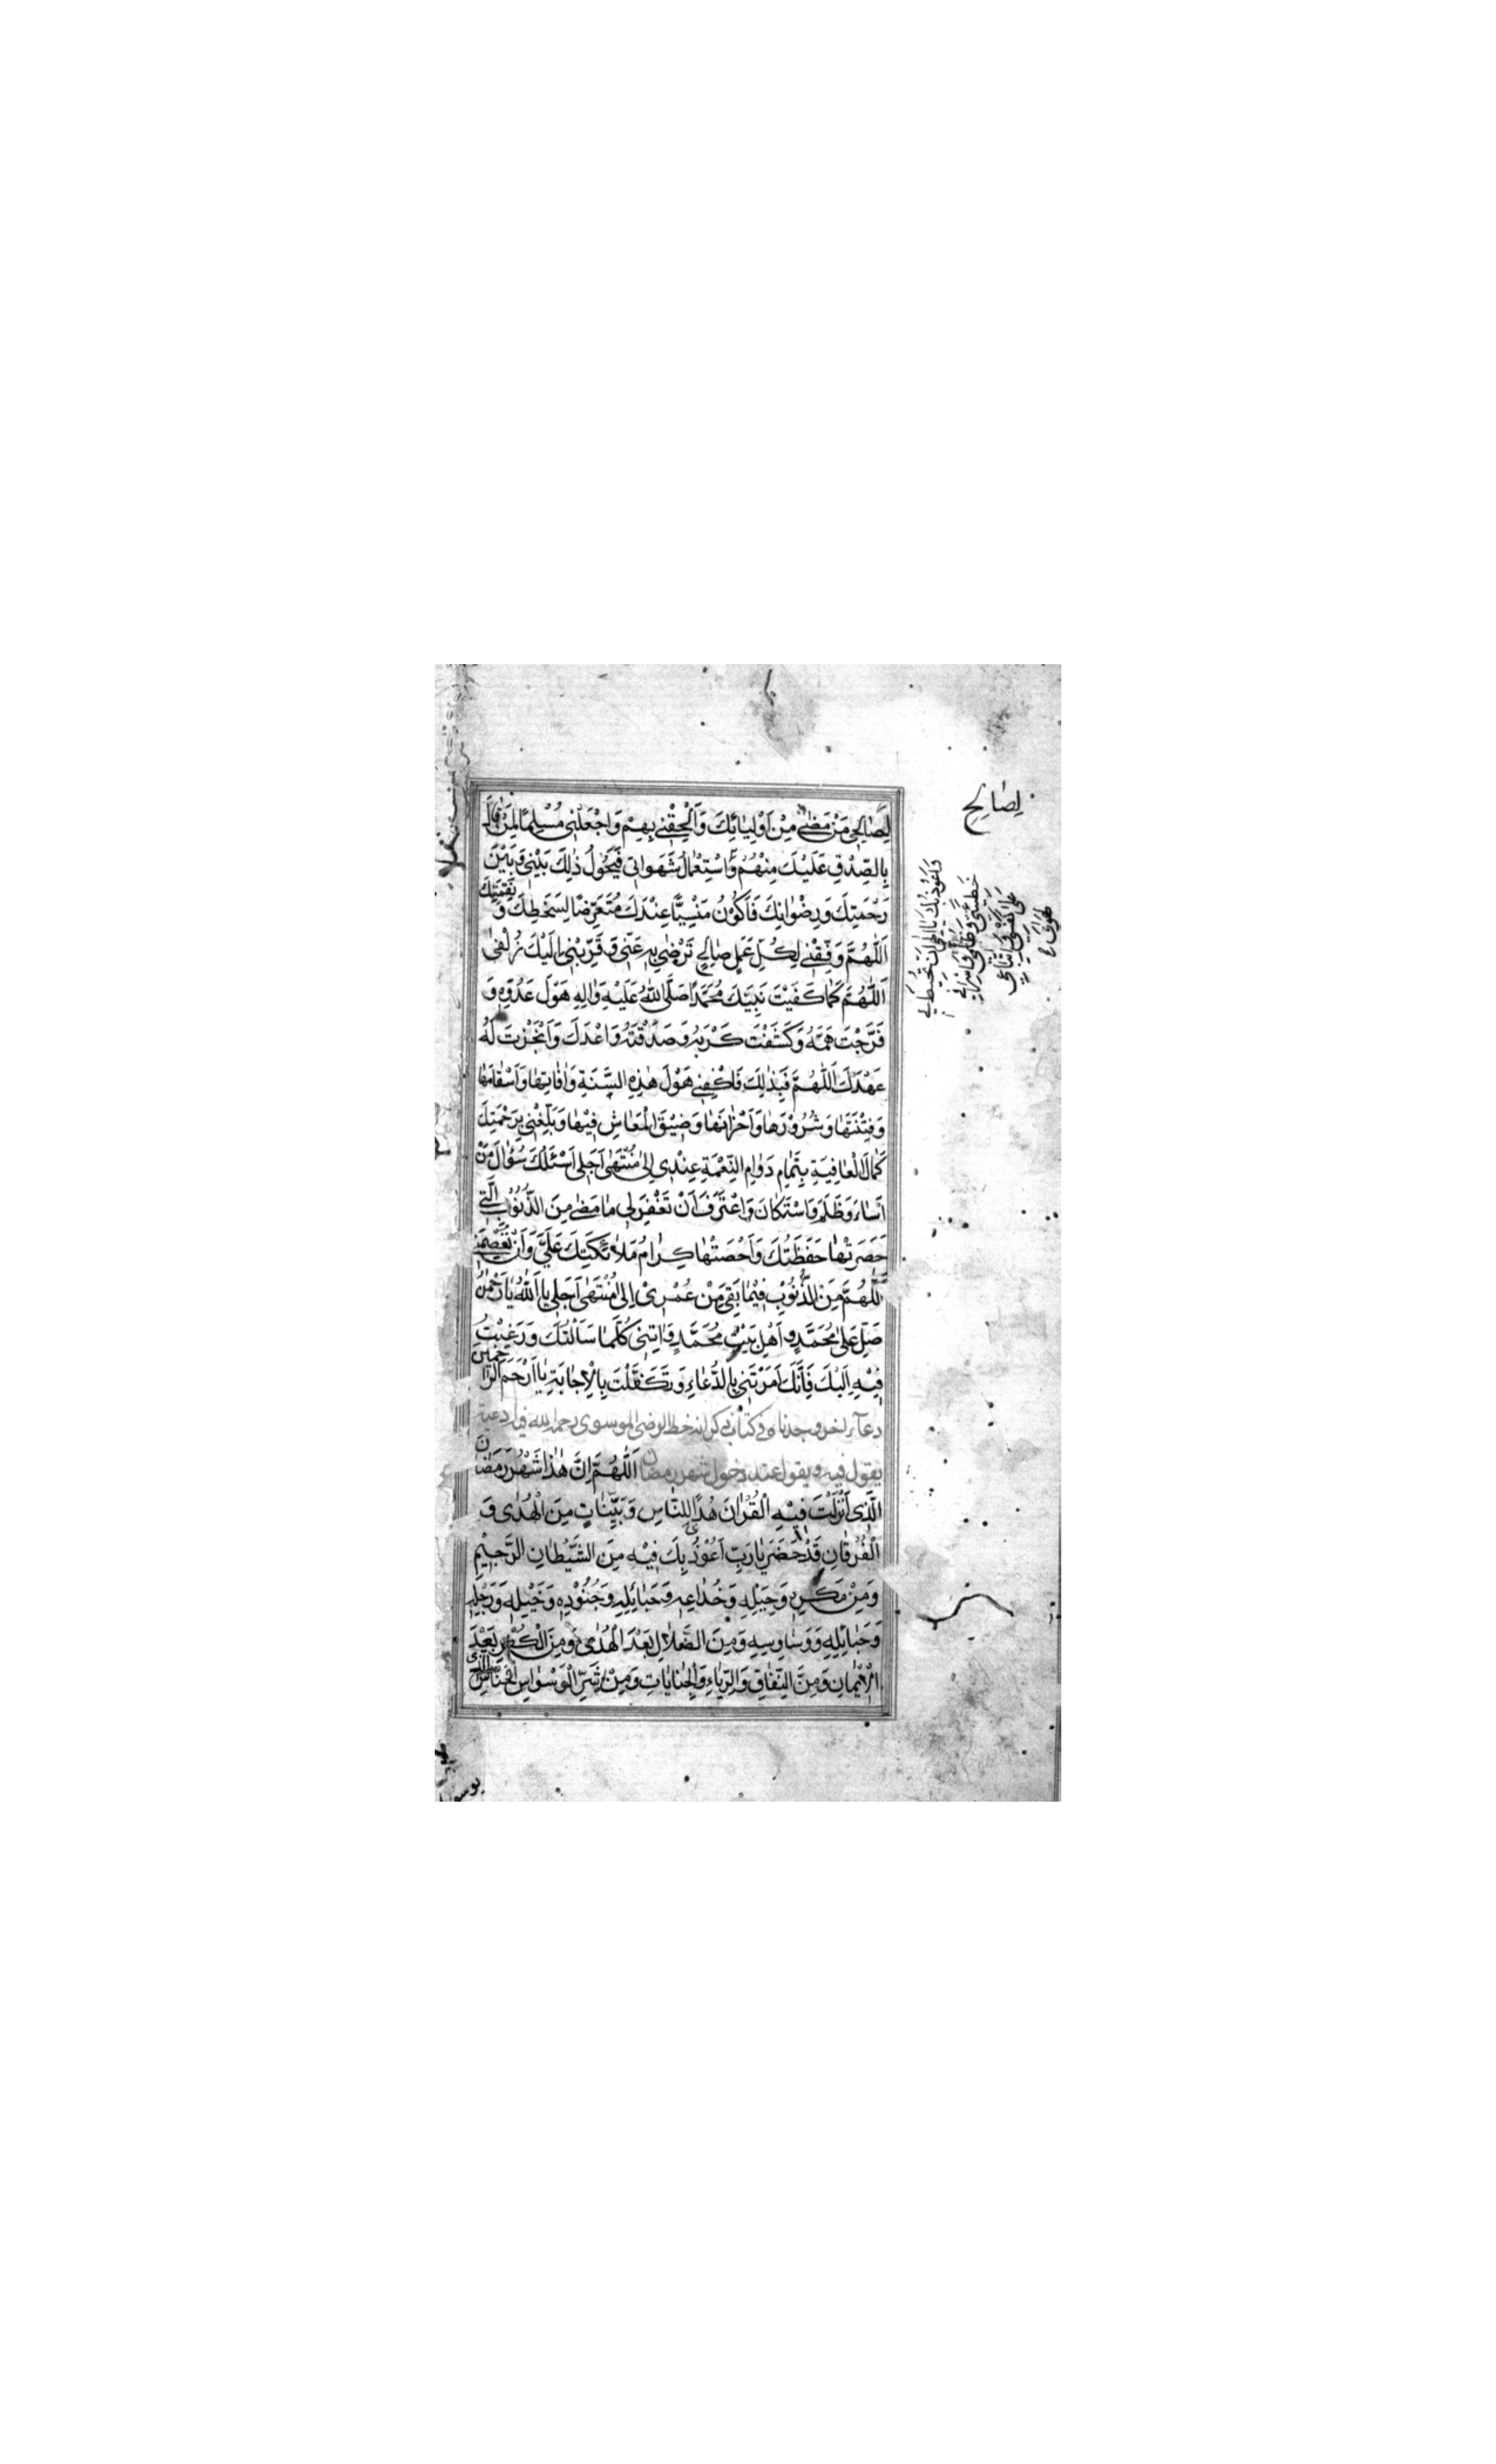 لِصَالِحِي مَنْ مَضٰى مِنْ اَوْلِيَائِكَ وَاَلْحِقْنِي بِهِمْ وَاجْعَلْنِي مُسْلِمًا لِمَنْ قَالَ
بِالصِّدْقِ عَلَيْكَ مِنْهُمْ وَاسْتِعْمَالُ شَهَوَاتِي فَيَحُولُ ذٰلِكَ بَيْنِي وَبَيْنَ
رَحْمَتِكَ وَرِضْوَانِكَ فَاَكُوْنُ مَنْسِيًّا عِنْدَكَ مُتَعَرِّضًا لِسَخَطِكَ وَ نَقِمَتِكَ
اَللّٰهُمَّ وَفِّقْنِي لِكُلِّ عَمَلٍ صَالِحٍ تَرْضٰى بِهِ عَنِّي وَ قَرِّبْنِي اِلَيْكَ زُلْفٰى
اَللّٰهُمَّ كَمَا كَفَيْتَ نَبِيَّكَ مُحَمَّدًا صَلَّى اللّٰهُ عَلَيْهِ وَاٰلِهِ هَوْلَ عَدُوِّهِ وَ
فَرَّجْتَ هَمَّهُ وَكَشَفْتَ كَرْبَهُ وَصَدَقْتَهُ وَعْدَكَ وَاَنْجَزْتَ لَهُ
عَهْدَكَ اَللّٰهُمَّ فَبِذٰلِكَ فَاكْفِنِي هَوْلَ هٰذِهِ السَّنَةِ وَاٰفَاتِهَا وَاَسْقَامَهَا
وَفِتْنَتَهَا وَشُرُوْرَهَا وَاَحْزَانَهَا وَضِيْقَ الْمَعَاشِ فِيْهَا وَبَلِّغْنِي بِرَحْمَتِكَ
كَمَالَ الْعَافِيَةِ بِتَمَامِ دَوَامِ النِّعْمَةِ عِنْدِي اِلٰى مُنْتَهٰى اَجَلِي اَسْئَلُكَ سُؤَالَ مَنْ
اَسَاءَ وَظَلَمَ وَاسْتَكَانَ وَاعْتَرَفَ اَنْ تَغْفِرَ لِي مَا مَضٰى مِنَ الذُّنُوْبِ الَّتِي
حَصَرَتْهَا حَفَظَتُكَ وَاَحْصَتْهَا كِرَامُ مَلَائِكَتِكَ عَلَيَّ وَاَنْ تَعْصِمَنِي
اَللّٰهُمَّ مِنَ الذُّنُوْبِ فِيْمَا بَقِيَ مِنْ عُمْرِي اِلٰى مُنْتَهٰى اَجَلِي يَا اَللّٰهُ يَا رَحْمٰنُ
صَلِّ عَلٰى مُحَمَّدٍ وَ اَهْلِ بَيْتِ مُحَمَّدٍ وَاٰتِنِي كُلَّمَا سَاَلْتُكَ وَرَغِبْتُ
فِيْهِ اِلَيْكَ فَاِنَّكَ اَمَرْتَنِي بِالدُّعَاءِ وَتَكَفَّلْتَ بِالْاِجَابَةِ يَا اَرْحَمَ الرَّاحِمِينَ
دعاء اخر وجدناه في كتاب ذكر انه خط الرضي الموسوي رحمه الله فيه ادعية
يقول فيه و يقول عند دخول شهر رمضان اَللّٰهُمَّ اِنَّ هٰذَا شَهْرُ رَمَضَانَ
الَّذِي اَنْزَلْتَ فِيْهِ الْقُرْاٰنَ هُدًى لِلنَّاسِ وَبَيِّنَاتٍ مِنَ الْهُدٰى وَ
الْفُرْقَانِ قَدْ حَضَرَ يَا رَبِّ اَعُوْذُ بِكَ فِيْهِ مِنَ الشَّيْطَانِ الرَّجِيْمِ
وَمِنْ مَكْرِهِ وَحِيَلِهِ وَخُدَاعِهِ وَحَبَائِلِهِ وَجُنُوْدِهِ وَخَيْلِهِ وَرَجِلِهِ
وَحَبَائِلِهِ وَوَسَاوِسِهِ وَمِنَ الضَّلَالِ بَعْدَ الْهُدٰى وَمِنَ الْكُفْرِ بَعْدَ
الْاِيْمَانِ وَمِنَ النِّفَاقِ وَالرِّيَاءِ وَالْجِنَايَاتِ وَمِنْ شَرِّ الْوَسْوَاسِ الْخَنَّاسِ الَّذِي
لِصَالِحِ
وَاَعُوْذُ بِكَ يَا اِلٰهِي اَنْ تُحِيْطَ بِي
خَطِيئَتِي وَظُلْمِي وَاِسْرَافِي
عَلٰى نَفْسِي وَاتِّبَاعِي
لِهَوَايَ
يوسوس